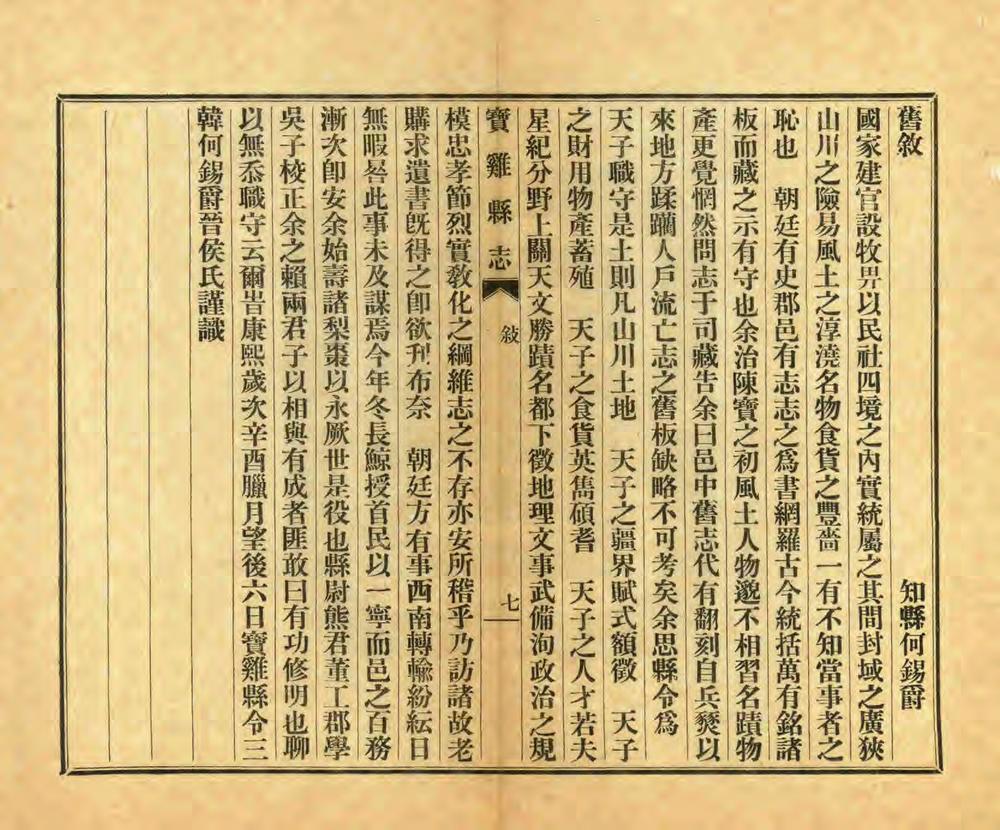 舊敘　知縣何錫爵
國家建官設牧畀以民社四境之內實統屬之其間封域之廣狹
山川之險易風土之淳澆名物食貨之豐嗇一有不知當事者之
恥也　朝廷有史郡邑有志志之爲書網羅古今統括萬有銘諸
板而藏之示有守也余治陳寶之初風土人物邈不相習名蹟物
產更覺惘然問志于司藏告余曰邑中舊志代有翻刻自兵燹以
來地方蹂躪人戶流亡志之舊板缺略不可考矣余思縣令爲
天子職守是土則凡山川土地　天子之疆界賦式額徵　天子
之財用物產蓄殖　天子之食貨英雋碩耆　天子之人才若夫
星紀分野上關天文勝蹟名都下徵地理文事武備洵政治之規
寶雞縣志　敘　七
模忠孝節烈實敎化之綱維志之不存亦安所稽乎乃訪諸故老
購求遺書旣得之卽欲刋布奈　朝廷方有事西南轉輸紛紜日
無暇晷此事未及謀焉今年冬長鯨授首民以一寧而邑之百務
漸次卽安余始壽諸梨棗以永厥世是役也縣尉熊君董工郡學
吳子校正余之賴兩君子以相與有成者匪敢曰有功修明也聊
以無忝職守云爾旹康熙歲次辛酉臘月望後六日寶雞縣令三
韓何錫爵晉侯氏謹識